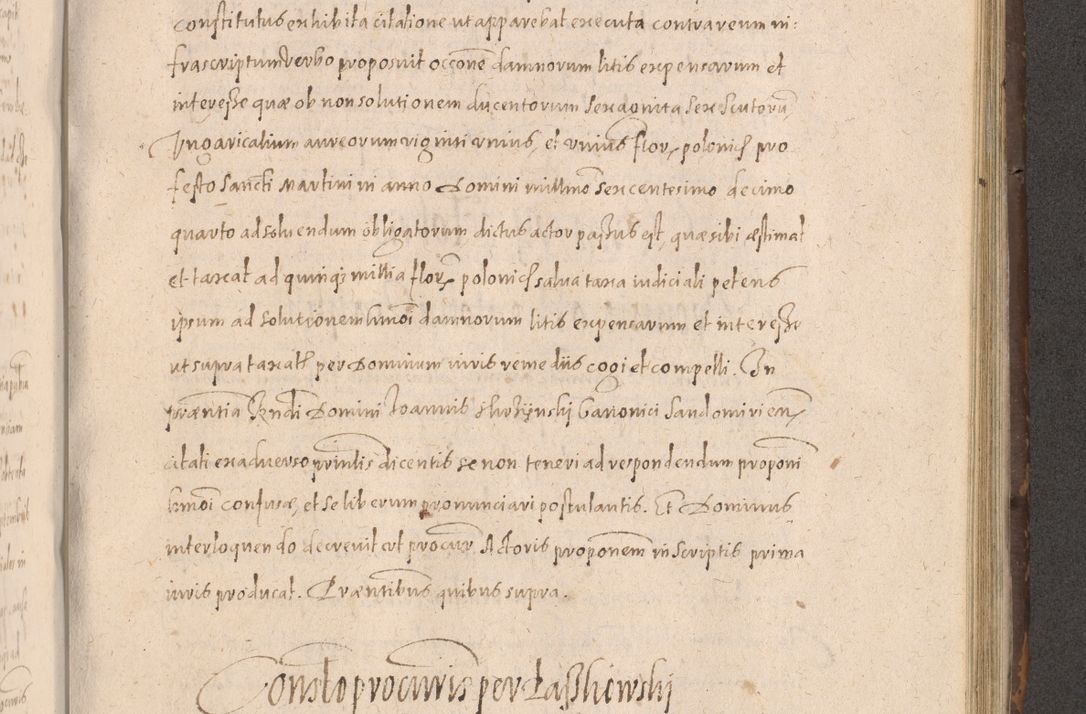 constitutus exhibita citatione ut apparebat executa contra reum in:
frascriptum verbo proposuit occōne damnorum litis expensarum et
interesse quæ ob non solutionem ducentorum sexaginta sex scutorū
Ungaricalium aureorum viginti unius, et unius flor. polonicł pro
festo Sancti Martini in anno Domini millmo Sexcentesimo decimo
quarto ad solvendum obligatorum dictus actor passus est, quæ sibi æstimat
et taxat ad quinqꝫ millia flor. polonicł salva taxa iudiciali petens
ipsum ad solutionem hmōi damnorum litis expensarum et interesse
ut supra taxatł per Dominum iuris remediis cogi et compelli. In
præntia Rndi Domini Joannis Canonici Sandomirien.
citati ex adverso prinlis dicentis se non teneri ad respondendum proponi
hmōi confusæ, et se liberum pronunciari postulantis. Et Dominus
interloquendo decrevit ut procur. Actoris proponem in scriptis prima
iuris producat. Præntibus quibus supra.
Constō procuris per Laszkewskij